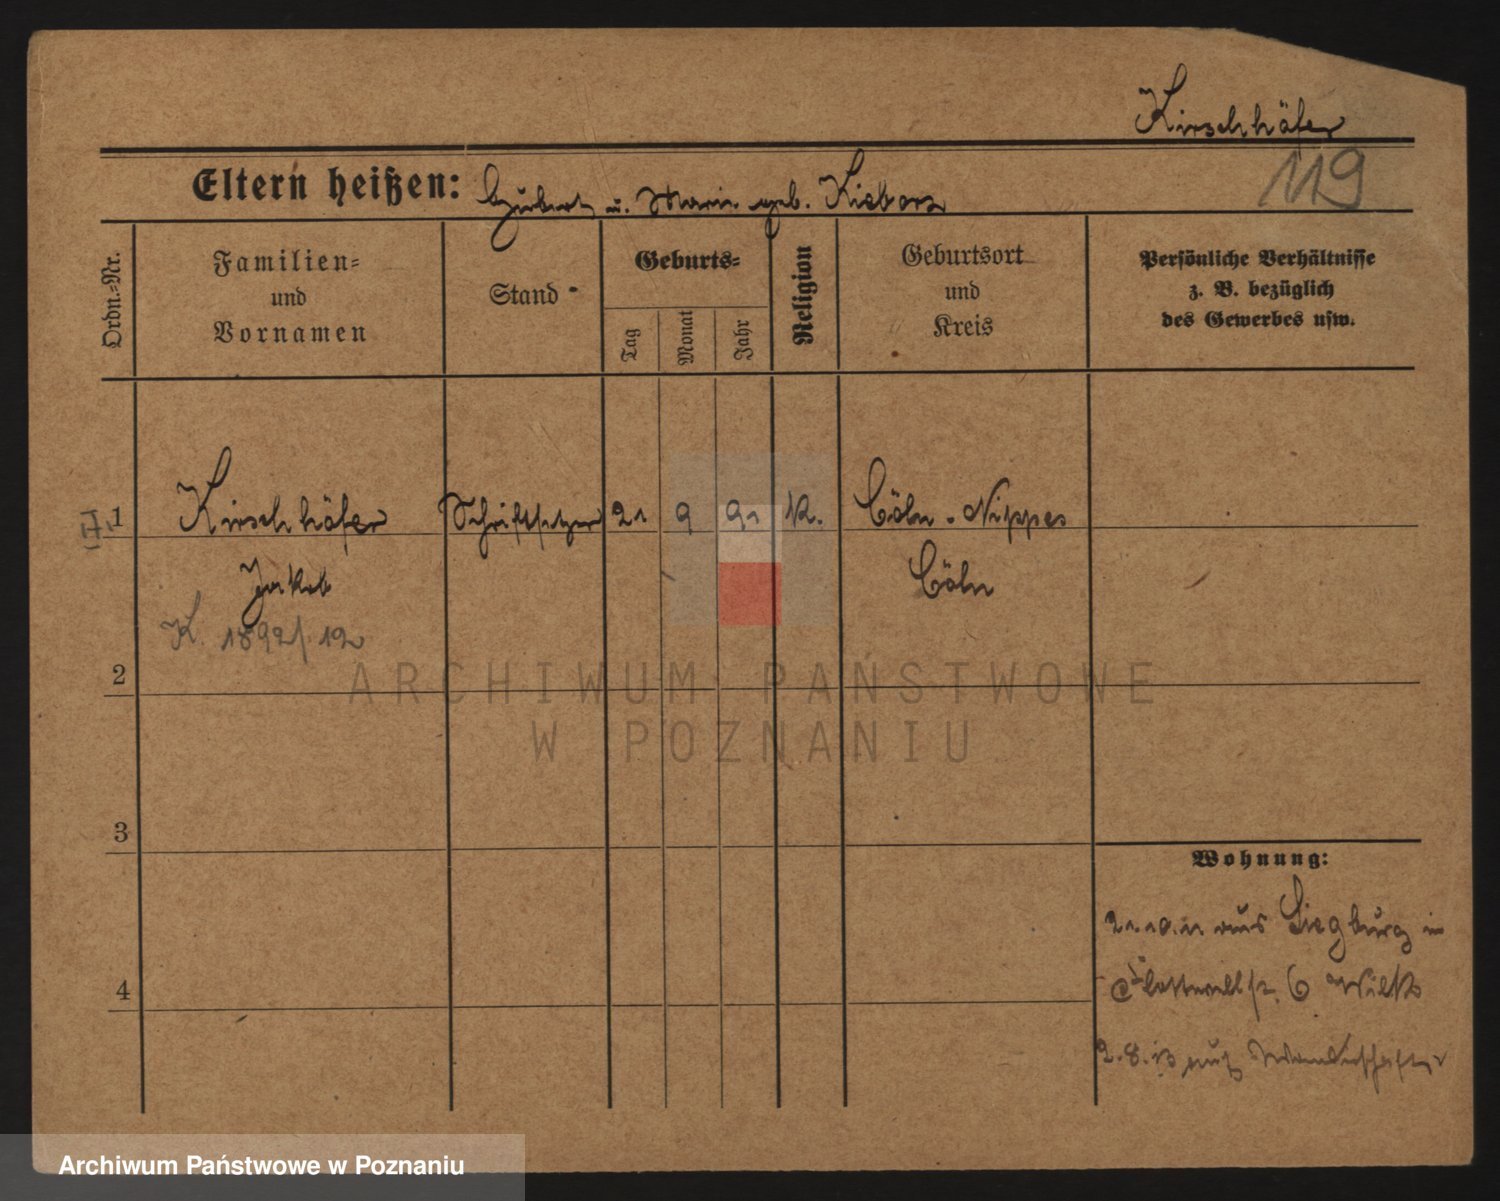 Kirschhöfer
119
Eltern heißen: Hubert u. Marie geb. Kisborz
Ordn.-Nr.
Familien-
und
Vornamen
Stand
Geburts-
Tag
Monat
Jahr
Religion
Geburtsort
und
Kreis
Persönliche Verhältnisse
z. B. bezüglich
des Gewerbes usw.
1 Kirschhöfer Schriftsetzer 21 9 91 K. Cöln-Nippes
Jakob Cöln
K. 1892/12
2
3
4
Wohnung:
21.10.11 aus Siegburg in
6
2.8.13 auf Wanderschaft
ARCHIWUM PAŃSTWOWE
W POZNANIU
Archiwum Państwowe w Poznaniu